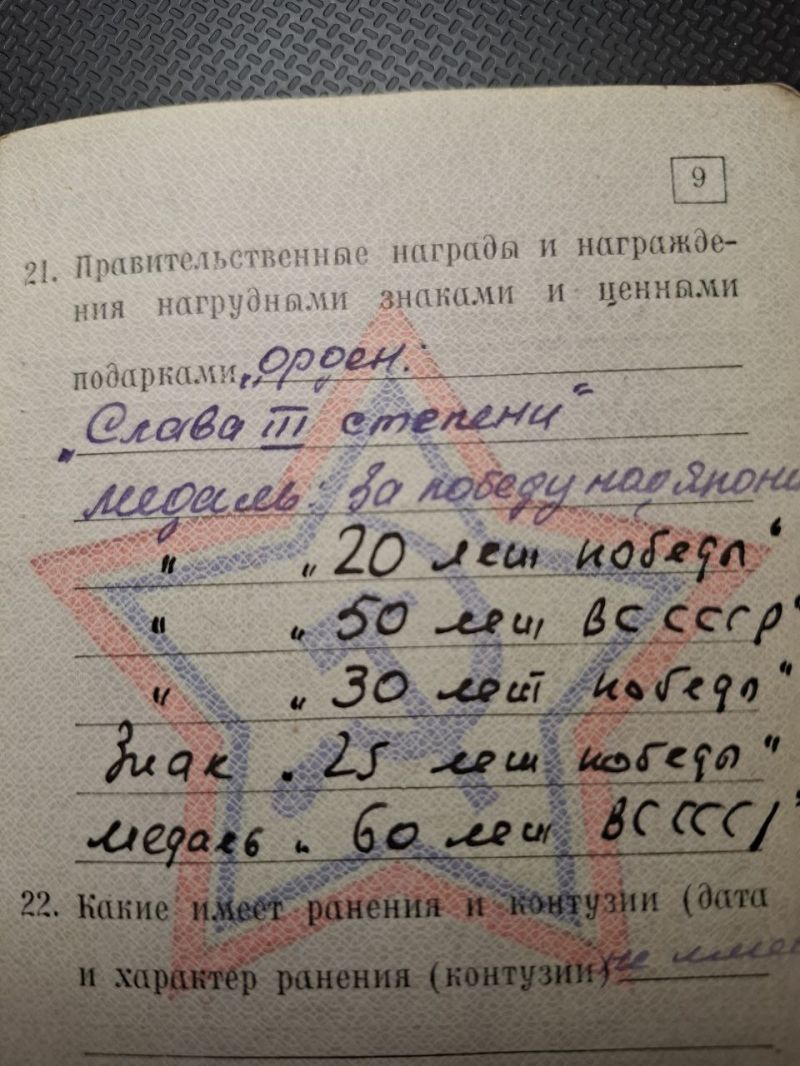 9
21. Правительственные награды и награжде-
ния нагрудными знаками и ценными
подарками „орден:
„Слава III степени"
медаль: За победу над Япони
" „20 лет победы"
" „50 лет ВС СССР"
" „30 лет победы"
Знак „25 лет победы"
медаль „60 лет ВС СССР"
22. Какие имеет ранения и контузии (дата
и характер ранения (контузии) не имее